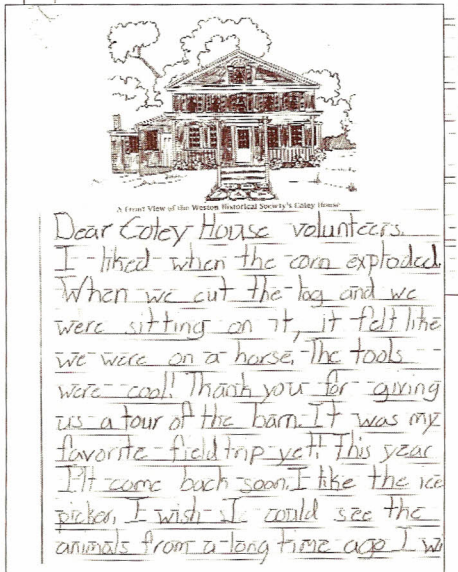 A Front View of the Weston Historical Society's Coley House
Dear Coley House volunteers.
I liked when the corn exploded.
When we cut the log and we
were sitting on it, it felt like
we were on a horse. The tools
were cool! Thank you for giving
us a tour of the barn. It was my
favorite field trip yet! This year
I'll come back soon. I like the ice
picker. I wish I could see the
animals from a long time ago I w